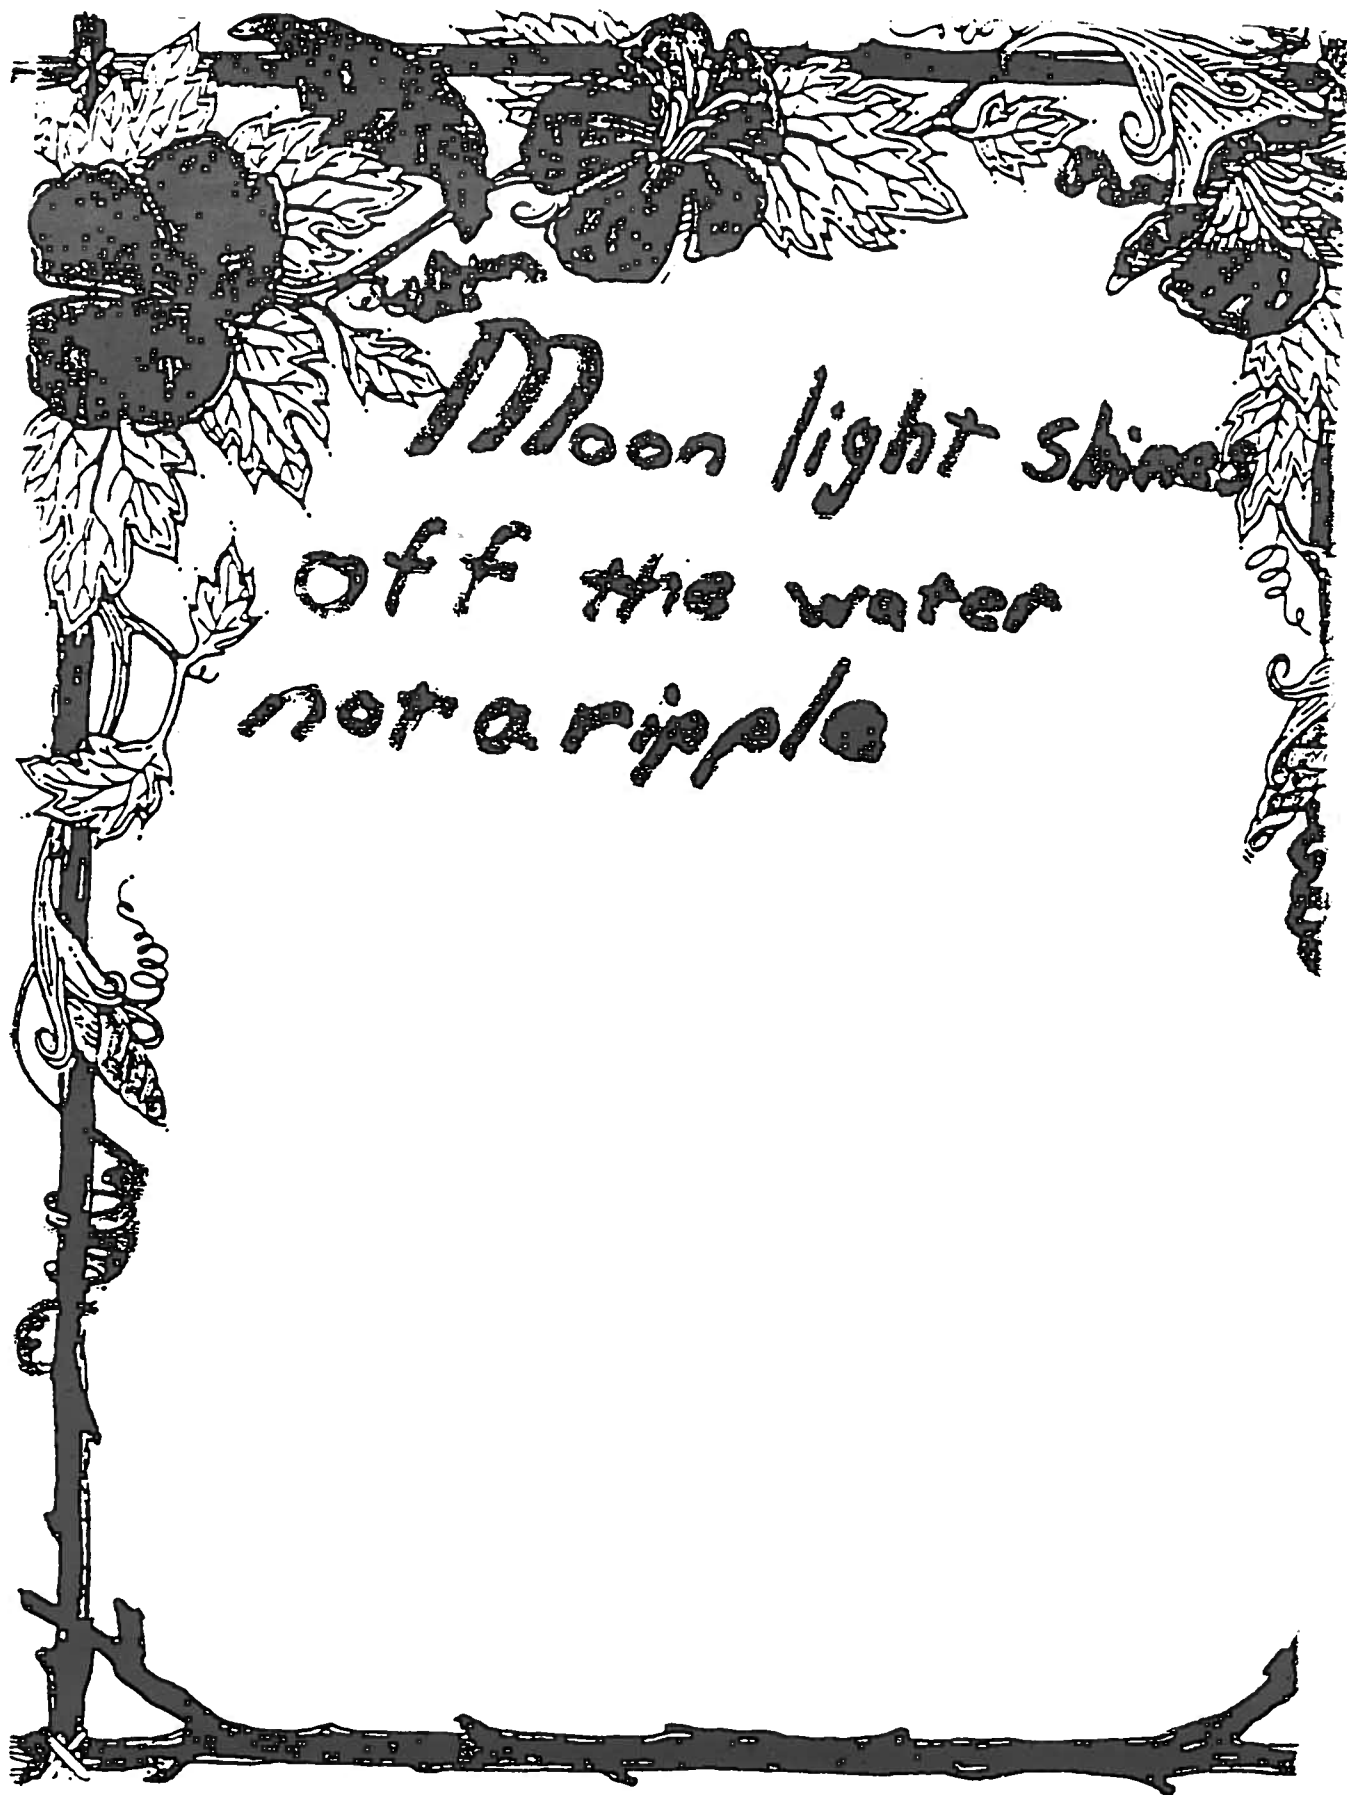 Moon light shines
off the water
not a ripple